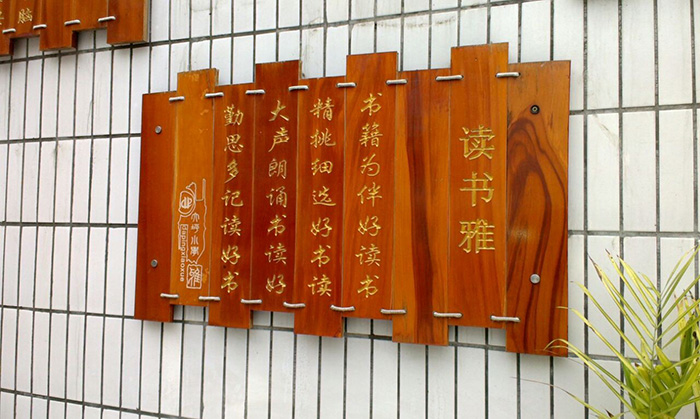 读书雅
书籍为伴好读书
精挑细选好书读
大声朗诵书读好
勤思多记读好书
雅
脑